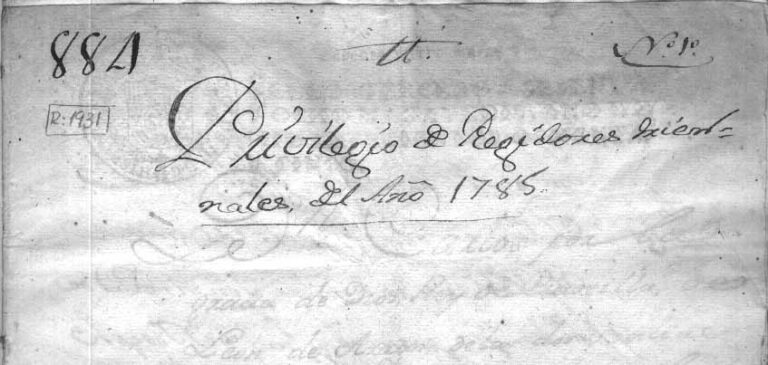 884 tt. N.º 1º
R: 1931
Privilegio de Regidores trien=
nales, del Año 1785.
Carlos por la
gracia de Dios Rey de Castilla, de
Leon de Aragon